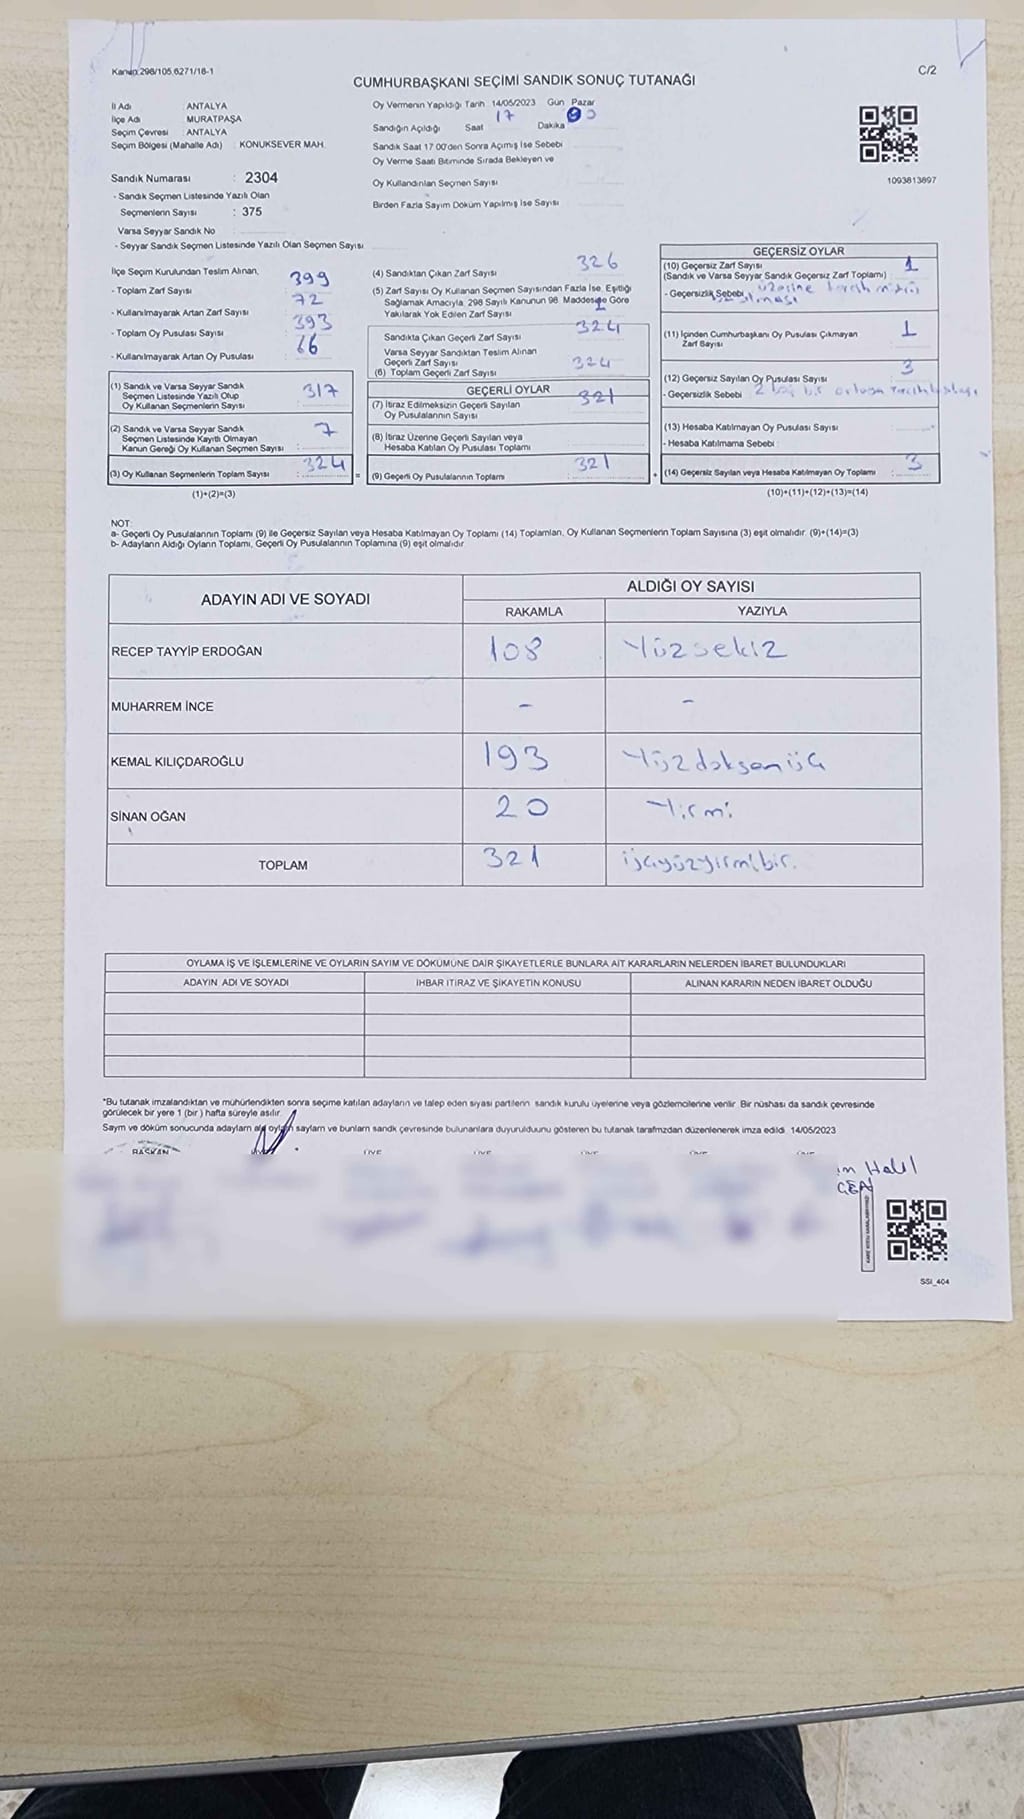 Kanun:298/105,6271/16-1
C/2
CUMHURBAŞKANI SEÇİMİ SANDIK SONUÇ TUTANAĞI
İl Adı : ANTALYA
İlçe Adı : MURATPAŞA
Seçim Çevresi : ANTALYA
Seçim Bölgesi (Mahalle Adı) : KONUKSEVER MAH.
Sandık Numarası : 2304
- Sandık Seçmen Listesinde Yazılı Olan
Seçmenlerin Sayısı : 375
Varsa Seyyar Sandık No :
- Seyyar Sandık Seçmen Listesinde Yazılı Olan Seçmen Sayısı
Oy Vermenin Yapıldığı Tarih 14/05/2023 Gün Pazar
Sandığın Açıldığı Saat 17 Dakika
Sandık Saat 17:00'den Sonra Açımış İse Sebebi
Oy Verme Saati Bitiminde Sırada Bekleyen ve
Oy Kullandırılan Seçmen Sayısı
Birden Fazla Sayım Döküm Yapılmış İse Sayısı
1093813897
İlçe Seçim Kurulundan Teslim Alınan,
- Toplam Zarf Sayısı : 399
- Kullanılmayarak Artan Zarf Sayısı : 72
- Toplam Oy Pusulası Sayısı : 393
- Kullanılmayarak Artan Oy Pusulası : 66
(1) Sandık ve Varsa Seyyar Sandık
Seçmen Listesinde Yazılı Olup
Oy Kullanan Seçmenlerin Sayısı : 317
(2) Sandık ve Varsa Seyyar Sandık
Seçmen Listesinde Kayıtlı Olmayan
Kanun Gereği Oy Kullanan Seçmen Sayısı : 7
(3) Oy Kullanan Seçmenlerin Toplam Sayısı : 324
(1)+(2)=(3)
(4) Sandıktan Çıkan Zarf Sayısı 326
(5) Zarf Sayısı Oy Kullanan Seçmen Sayısından Fazla İse, Eşitliği
Sağlamak Amacıyla, 298 Sayılı Kanunun 98. Maddesine Göre
Yakılarak Yok Edilen Zarf Sayısı
Sandıkta Çıkan Geçerli Zarf Sayısı 324
Varsa Seyyar Sandıktan Teslim Alınan
Geçerli Zarf Sayısı
(6) Toplam Geçerli Zarf Sayısı 324
GEÇERLİ OYLAR
(7) İtiraz Edilmeksizin Geçerli Sayılan 321
Oy Pusulalarının Sayısı
(8) İtiraz Üzerine Geçerli Sayılan veya
Hesaba Katılan Oy Pusulası Toplamı
= (9) Geçerli Oy Pusulalarının Toplamı 321
GEÇERSİZ OYLAR
(10) Geçersiz Zarf Sayısı 1
(Sandık ve Varsa Seyyar Sandık Geçersiz Zarf Toplamı)
- Geçersizlik Sebebi üzerine
(11) İçinden Cumhurbaşkanı Oy Pusulası Çıkmayan 1
Zarf Sayısı
(12) Geçersiz Sayılan Oy Pusulası Sayısı 3
- Geçersizlik Sebebi 2 bir
(13) Hesaba Katılmayan Oy Pusulası Sayısı
- Hesaba Katılmama Sebebi
+ (14) Geçersiz Sayılan veya Hesaba Katılmayan Oy Toplamı 3
(10)+(11)+(12)+(13)=(14)
NOT:
a- Geçerli Oy Pusulalarının Toplamı (9) ile Geçersiz Sayılan veya Hesaba Katılmayan Oy Toplamı (14) Toplamları, Oy Kullanan Seçmenlerin Toplam Sayısına (3) eşit olmalıdır. (9)+(14)=(3)
b- Adayların Aldığı Oyların Toplamı, Geçerli Oy Pusulalarının Toplamına (9) eşit olmalıdır.
ADAYIN ADI VE SOYADI ALDIĞI OY SAYISI
RAKAMLA YAZIYLA
RECEP TAYYİP ERDOĞAN 108 Yüzsekiz
MUHARREM İNCE - -
KEMAL KILIÇDAROĞLU 193 Yüzdoksanüç
SİNAN OĞAN 20 Yirmi
TOPLAM 321 üçyüzyirmibir.
OYLAMA İŞ VE İŞLEMLERİNE VE OYLARIN SAYIM VE DÖKÜMÜNE DAİR ŞİKAYETLERLE BUNLARA AİT KARARLARIN NELERDEN İBARET BULUNDUKLARI
ADAYIN ADI VE SOYADI İHBAR İTİRAZ VE ŞİKAYETİN KONUSU ALINAN KARARIN NEDEN İBARET OLDUĞU
*Bu tutanak imzalandıktan ve mühürlendikten sonra seçime katılan adayların ve talep eden siyasi partilerin sandık kurulu üyelerine veya gözlemcilerine verilir. Bir nüshası da sandık çevresinde
görülecek bir yere 1 (bir ) hafta süreyle asılır.
Sayım ve döküm sonucunda adayların oyları sayları ve bunların sandk çevresinde bulunanlara duyurulduunu gösteren bu tutanak tarafmzdan düzenlenerek imza edildi. 14/05/2023
BAŞKAN
Halil
SSI_404